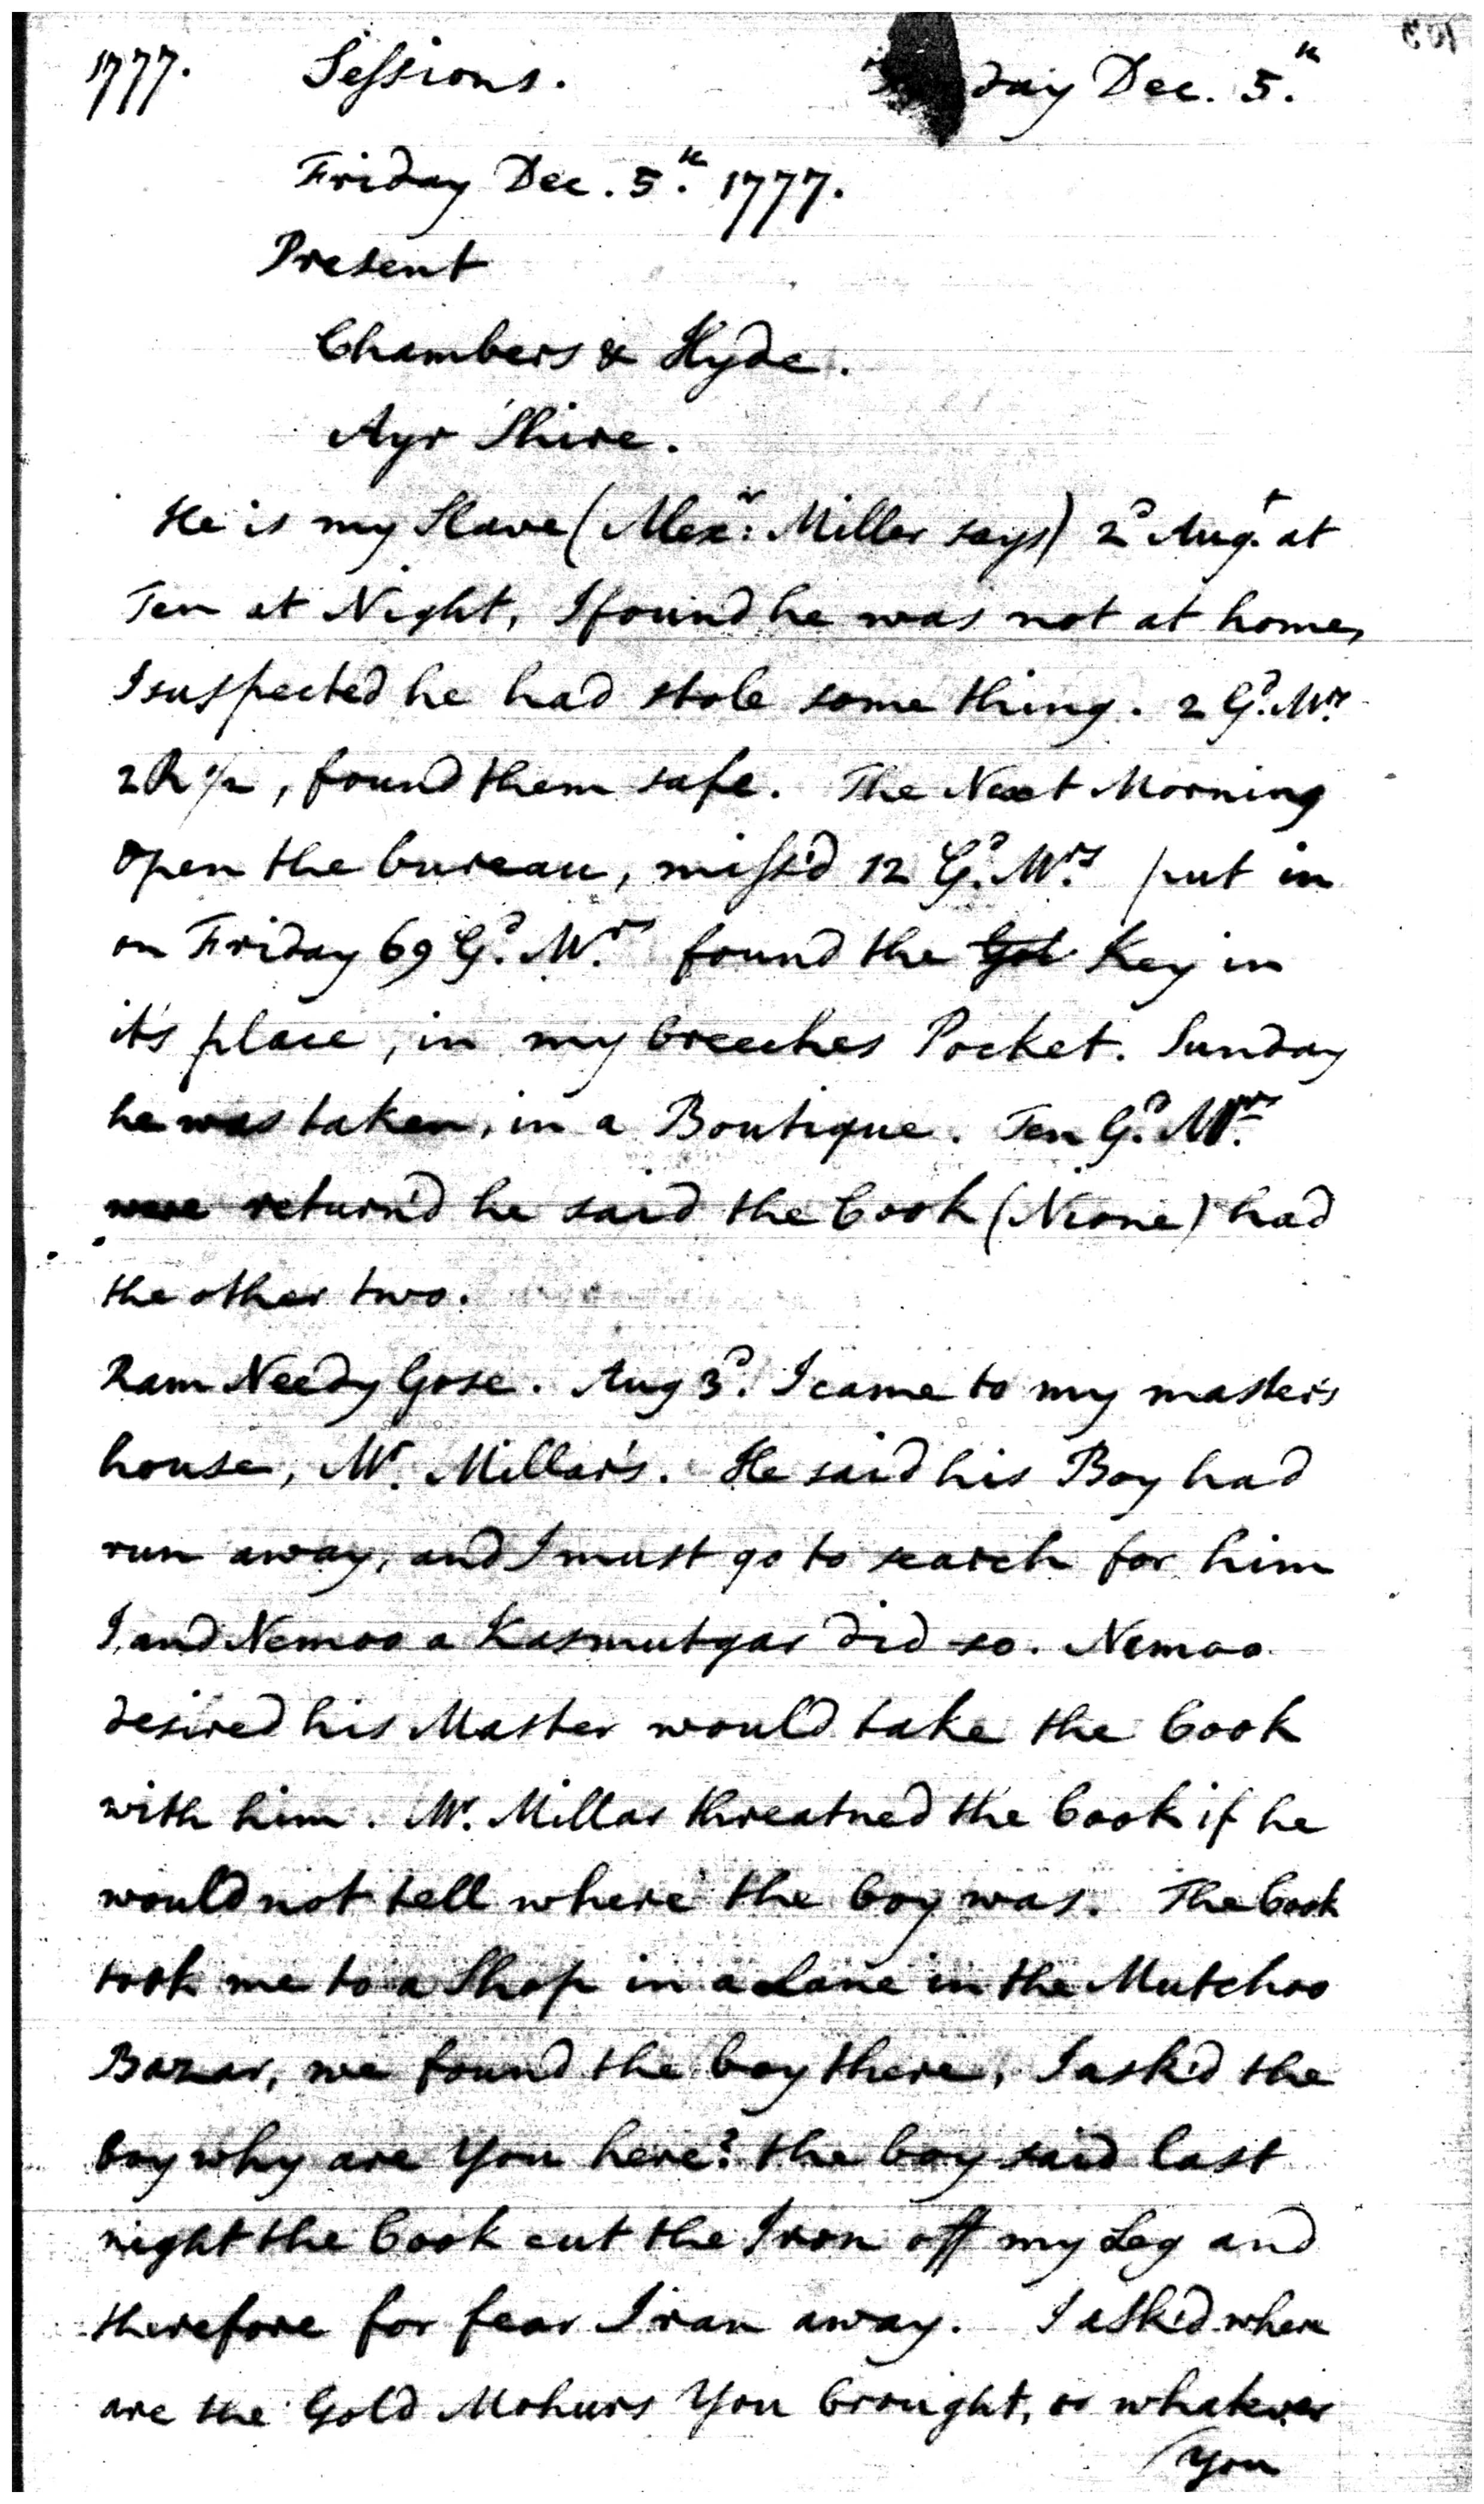 1777. Sessions. day Dec. 5.th
Friday Dec. 5.th 1777.
Present
Chambers & Hyde.
Ayr Shire.
He is my Slave (Alexr: Miller says) 2d Augt. at
Ten at Night, I found he was not at home,
I suspected he had stole some thing. 2 Gd. Mrs.
2 R, found them safe. The Next Morning
open the bureau, miss'd 12 Gd. Mrs. put in
on Friday 69 Gd. Mrs. found the Key in
it's place, in my breeches Pocket. Sunday
he was taken, in a Boutique. Ten Gd. Mrs.
were return'd he said the Cook (Nione) had
the other two.
Ram Needy Gose. Aug 3d. I came to my master's
house, Mr. Millar's. He said his Boy had
run away, and I must go to search for him
I, and Nemoo a Kasmutgar did so. Nemoo
desired his Master would take the Cook
with him. Mr. Millar threatned the Cook if he
would not tell where the boy was. The Cook
took me to a Shop in a Lane in the Mutchoo
Bazar, we found the boy there, I ask'd the
boy why are You here? the boy said last
night the Cook cut the Iron off my Leg and
therefore for fear I ran away. I ask'd where
are the Gold Mohurs You brought, or whatever
/You